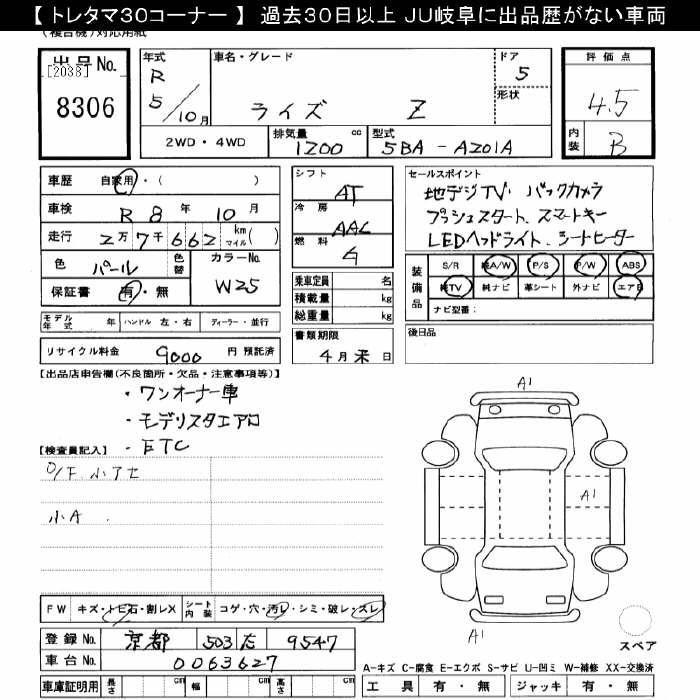 【 トレタマ30コーナー 】 過去30日以上 JU岐阜に出品歴がない車両
(複合機) 対応用紙
出品No.
[2038]
8306
年式
R
5/10月
車名・グレード
ライズ Z
ドア
5
形状
2WD・4WD
排気量 cc
1200
型式
5BA - A201A
評価点
4.5
内装
B
車歴 自家用・( )
車検 R 8 年 10 月
走行 2万7千662 km マイル ( )
色 パール 色替
カラーNo.
W25
保証書 有・無
シフト
AT
冷房
AAC
燃料
G
乗車定員 名
積載量 kg
総重量 kg
書類期限
4月末日
セールスポイント
地デジTV. バックカメラ
プッシュスタート、スマートキー
LEDヘッドライト、シートヒーター
装備品
S/R 純A/W P/S P/W ABS
純TV 純ナビ 革シート 外ナビ エアB
ナビ型番:
モデル年式 年 ハンドル 左・右 ディーラー・並行
リサイクル料金 9000 円 預託済
後日品
【出品店申告欄(不良箇所・欠品・注意事項等)】
・ワンオーナー車
・モデリスタエアロ
・ETC
【検査員記入】
小A
A1
A1
A1
スペア
FW キズ・トビ石・割レX シート内装 コゲ・穴・汚レ・シミ・破レ・スレ
登録No. 京都 503 9547
車台No. 0063627
車庫証明用 長さ cm 幅 cm 高さ cm
A-キズ C-腐食 E-エクボ S-サビ U-凹ミ W-補修 XX-交換済
工具 有・無 ジャッキ 有・無